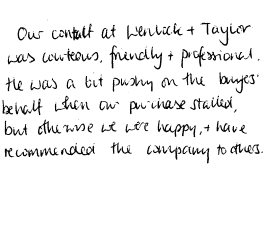 Our contact at Wenlock + Taylor
was courteous, friendly + professional.
He was a bit pushy on the buyers'
behalf when our purchase stalled,
but otherwise we were happy, + have
recommended the company to others.